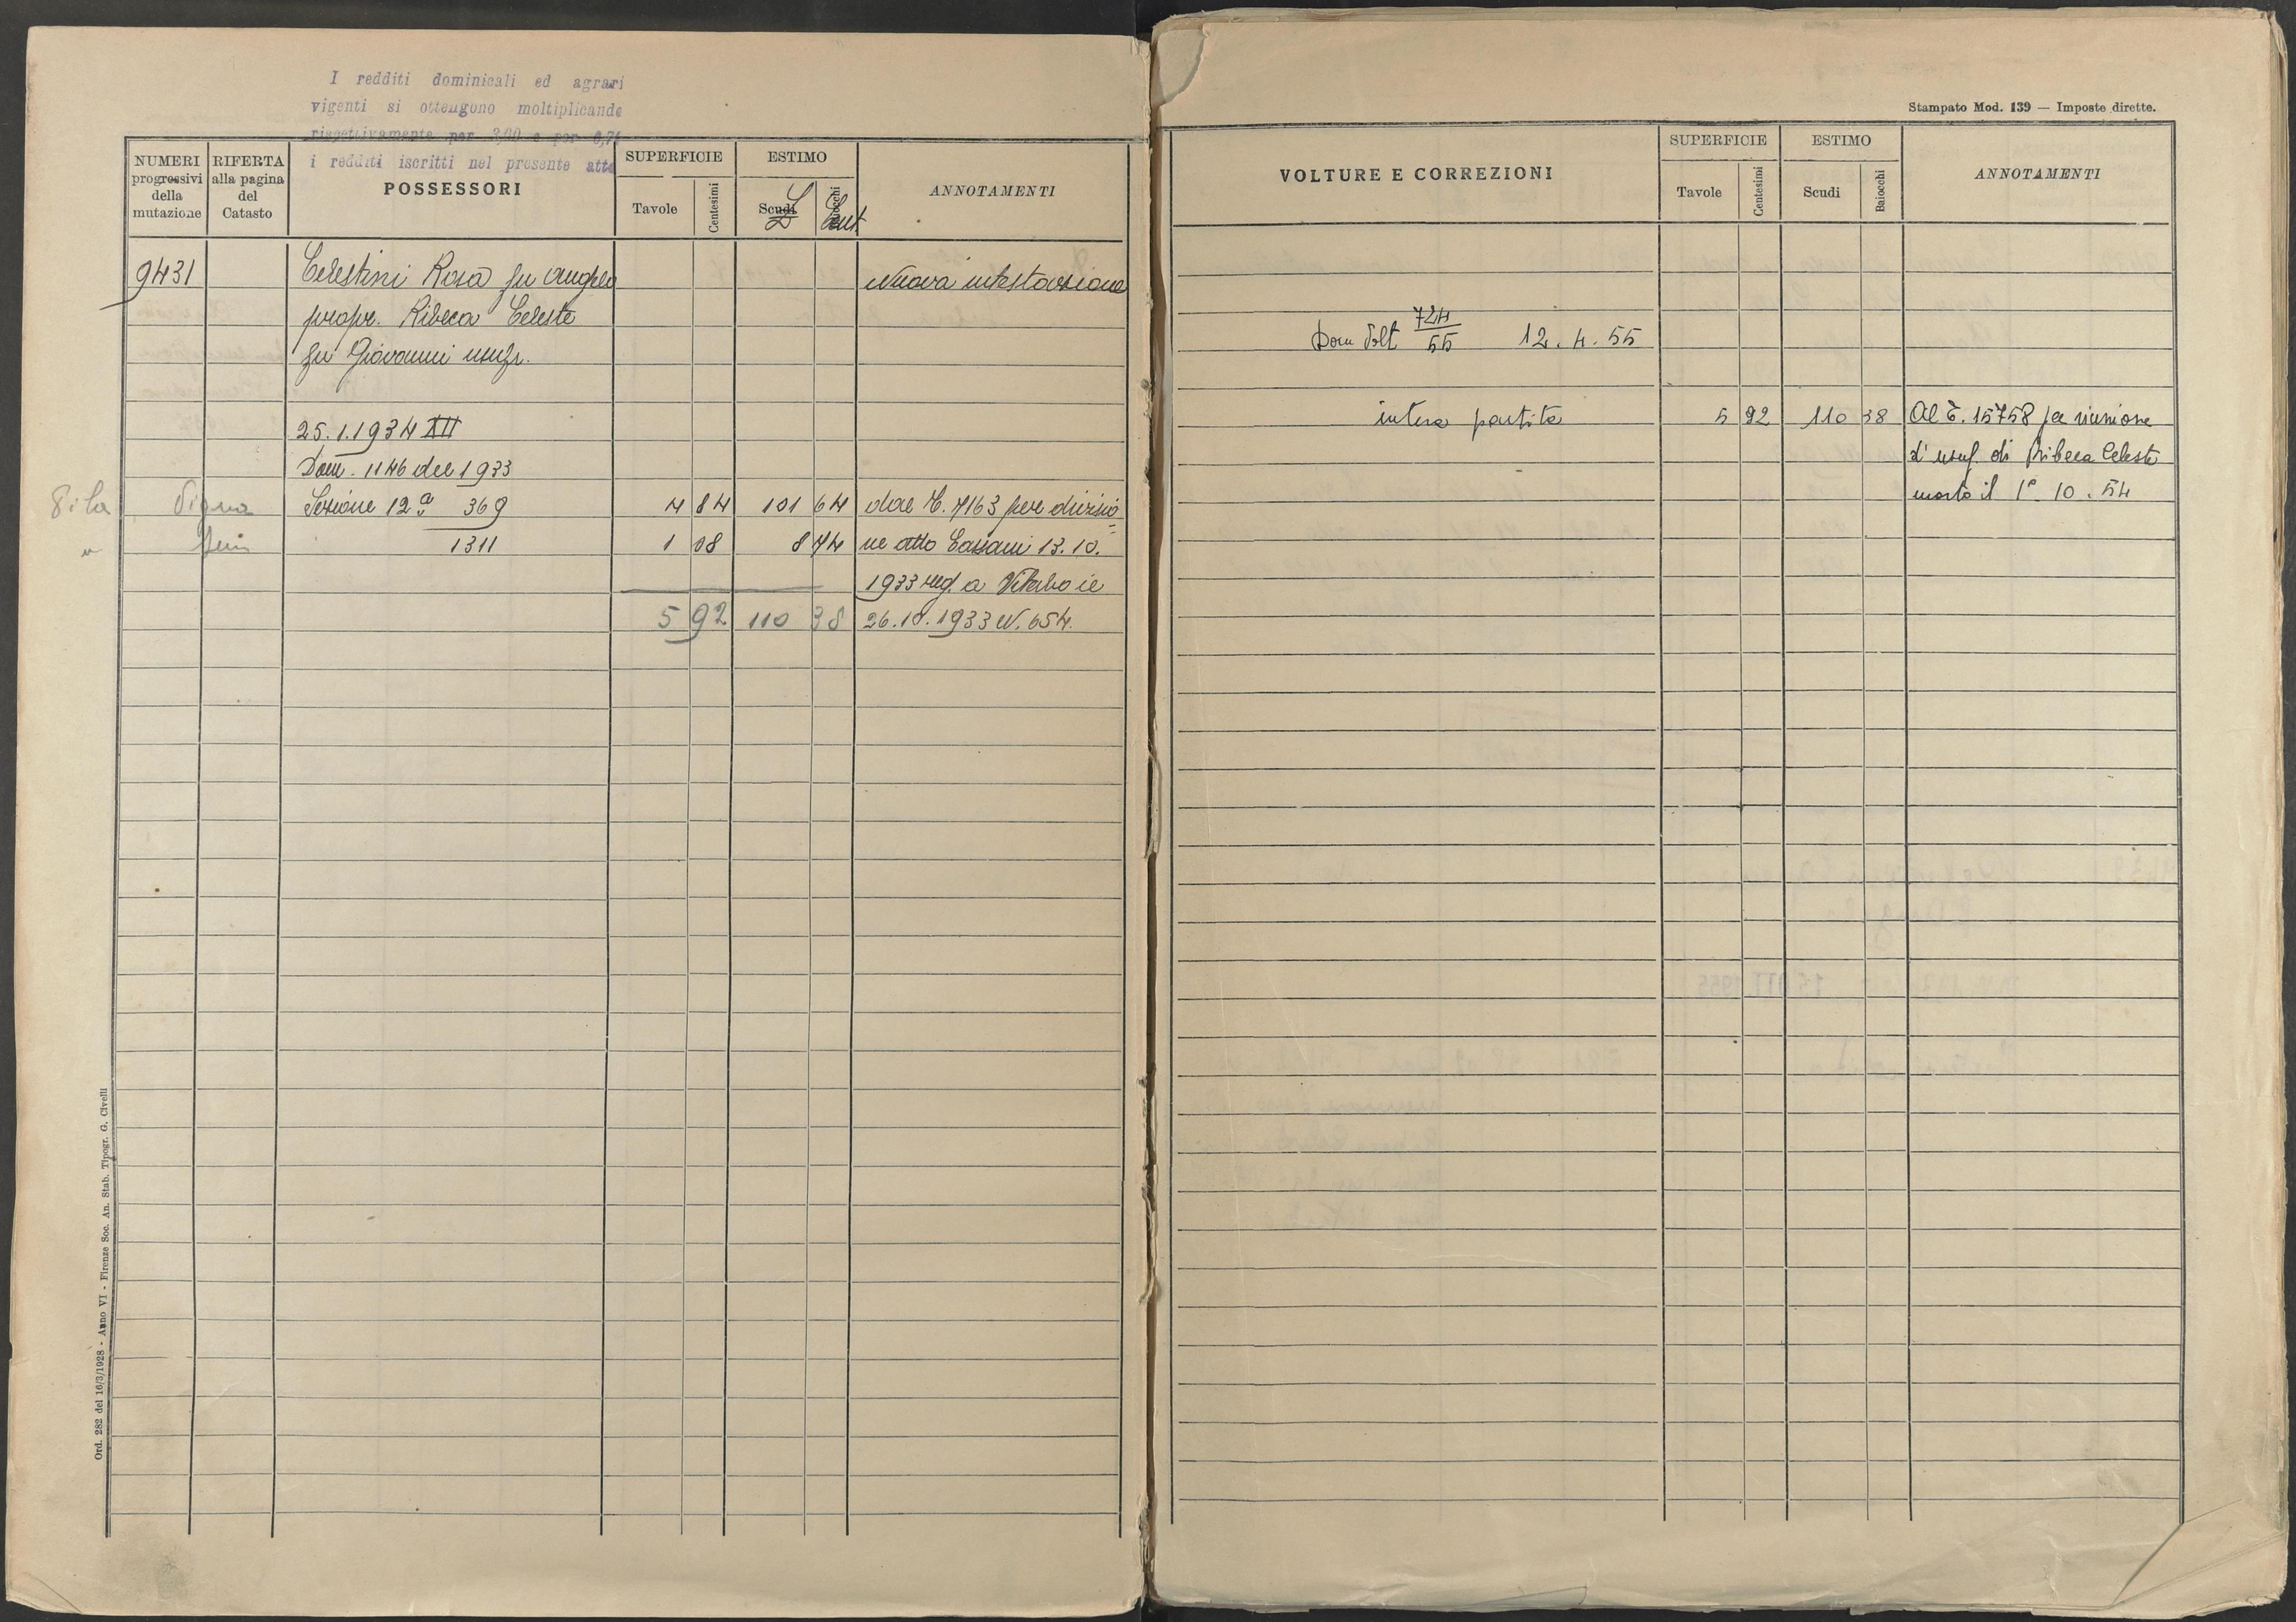 I redditi dominicali ed agrari
vigenti si ottengono moltiplicando
rispettivamente per 3,00 e per 0,7
i redditi iscritti nel presente atto
NUMERI progressivi della mutazione
RIFERTA alla pagina del Catasto
POSSESSORI
SUPERFICIE
Tavole Centesimi
ESTIMO
Scudi L Baiocchi Cent
ANNOTAMENTI
9431 Celestini Rosa fu Angelo Nuova intestazione
propr. Ribeca Celeste
fu Giovanni usufr.
25.1.1934 XII
Dom. 1146 del 1933
Vigna Sezione 12ª 369 4 84 101 64 dal N. 7163 per divisio
1311 1 08 8 74 ne atto Cassani 13.10.
1933 reg. a Viterbo il
5 92 110 38 26.10.1933 N. 654.
Ord. 282 del 16/3/1928 - Anno VI - Firenze Soc. An. Stab. Tipogr. G. Civelli
Stampato Mod. 139 — Imposte dirette.
VOLTURE E CORREZIONI
SUPERFICIE
Tavole Centesimi
ESTIMO
Scudi Baiocchi
ANNOTAMENTI
Dom Volt 724/55 12.4.55
intera partita 5 92 110 38 Al 15758 per riunione
d'usuf. di Ribeca Celeste
morto il 1º.10.54